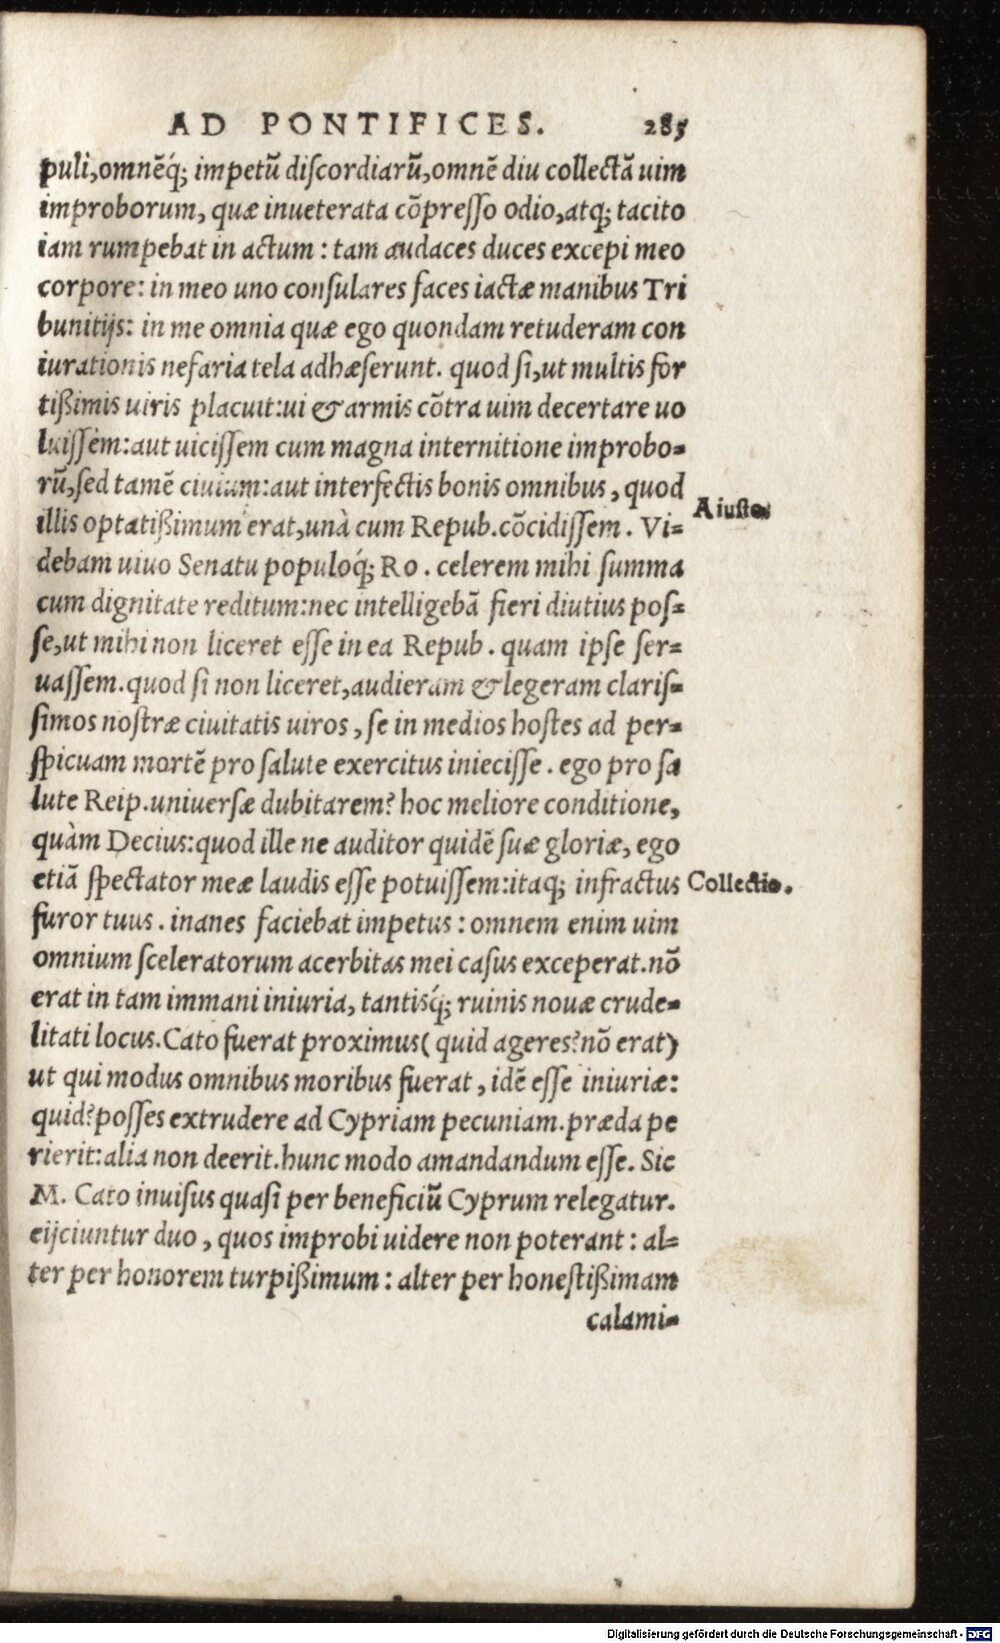 AD PONTIFICES. 285
puli,omnẽq́; impetũ diſcordiarũ,omnẽ diu collectã uim
improborum, quæ inueterata cõpreſſo odio,atq; tacito
iam rumpebat in actum : tam audaces duces excepi meo
corpore: in meo uno conſulares faces iactæ manibus Tri
bunitijs: in me omnia quæ ego quondam retuderam con
iurationis nefaria tela adhæſerunt. quod ſi,ut multis for
tißimis uiris placuit:ui & armis cõtra uim decertare uo
luiſſem:aut uiciſſem cum magna internitione improbo=
rũ,ſed tamẽ ciuium:aut interfectis bonis omnibus, quod
illis optatißimum erat,unà cum Repub.cõcidiſſem. Vi=
A iusto.
debam uiuo Senatu populóq́; Ro. celerem mihi ſumma
cum dignitate reditum:nec intelligebã fieri diutius poſ=
ſe,ut mihi non liceret eſſe in ea Repub. quam ipſe ſer=
uaſſem.quod ſi non liceret,audieram & legeram clariſ=
ſimos noſtræ ciuitatis uiros, ſe in medios hoſtes ad per=
ſpicuam mortẽ pro ſalute exercitus inieciſſe. ego pro ſa
lute Reip.uniuerſæ dubitarem? hoc meliore conditione,
quàm Decius:quod ille ne auditor quidẽ ſuæ gloriæ, ego
etiã ſpectator meæ laudis eſſe potuiſſem:itaq; infractus
Collectio.
furor tuus. inanes faciebat impetus: omnem enim uim
omnium ſceleratorum acerbitas mei caſus exceperat.nõ
erat in tam immani iniuria, tantisq́; ruinis nouæ crude=
litati locus.Cato fuerat proximus( quid ageres?nõ erat)
ut qui modus omnibus moribus fuerat, idẽ eſſe iniuriæ:
quid?poſſes extrudere ad Cypriam pecuniam.præda pe
rierit:alia non deerit.hunc modo amandandum eſſe. Sic
M. Cato inuiſus quaſi per beneficiũ Cyprum relegatur.
eijciuntur duo, quos improbi uidere non poterant: al=
ter per honorem turpißimum: alter per honeſtißimam
calami=
Digitalisierung gefördert durch die Deutsche Forschungsgemeinschaft - DFG